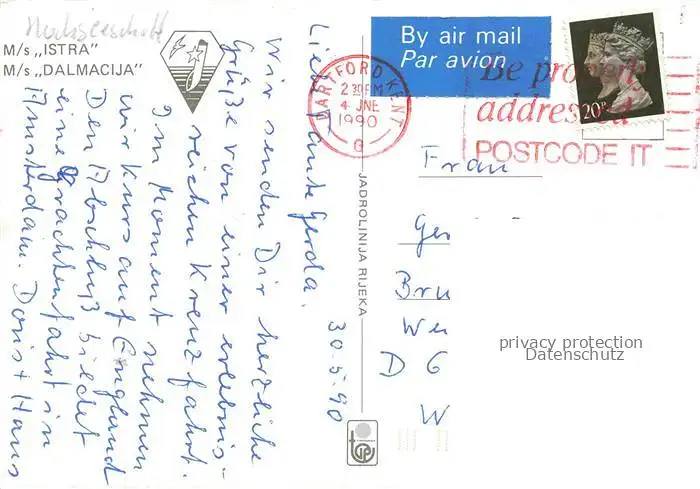 Hochseeschiff
M/s „ISTRA"
M/s „DALMACIJA"
30.5.90
Liebe Tante Gerda.
Wir senden Dir herzliche
Grüße von einer erlebnis-
reichen Kreuzfahrt.
Im Moment nehmen
wir Kurs auf England
Den Abschluß bildet
eine Grachtenfahrt in
Amsterdam. Doris + Hans
JADROLINIJA RIJEKA
By air mail
Par avion
DARTFORD KENT
2 30PM
4 JNE
1990
G
Be properly
addressed
POSTCODE IT
20P
Frau
Ger
Bru
Wer
D 6
W
privacy protection
Datenschutz